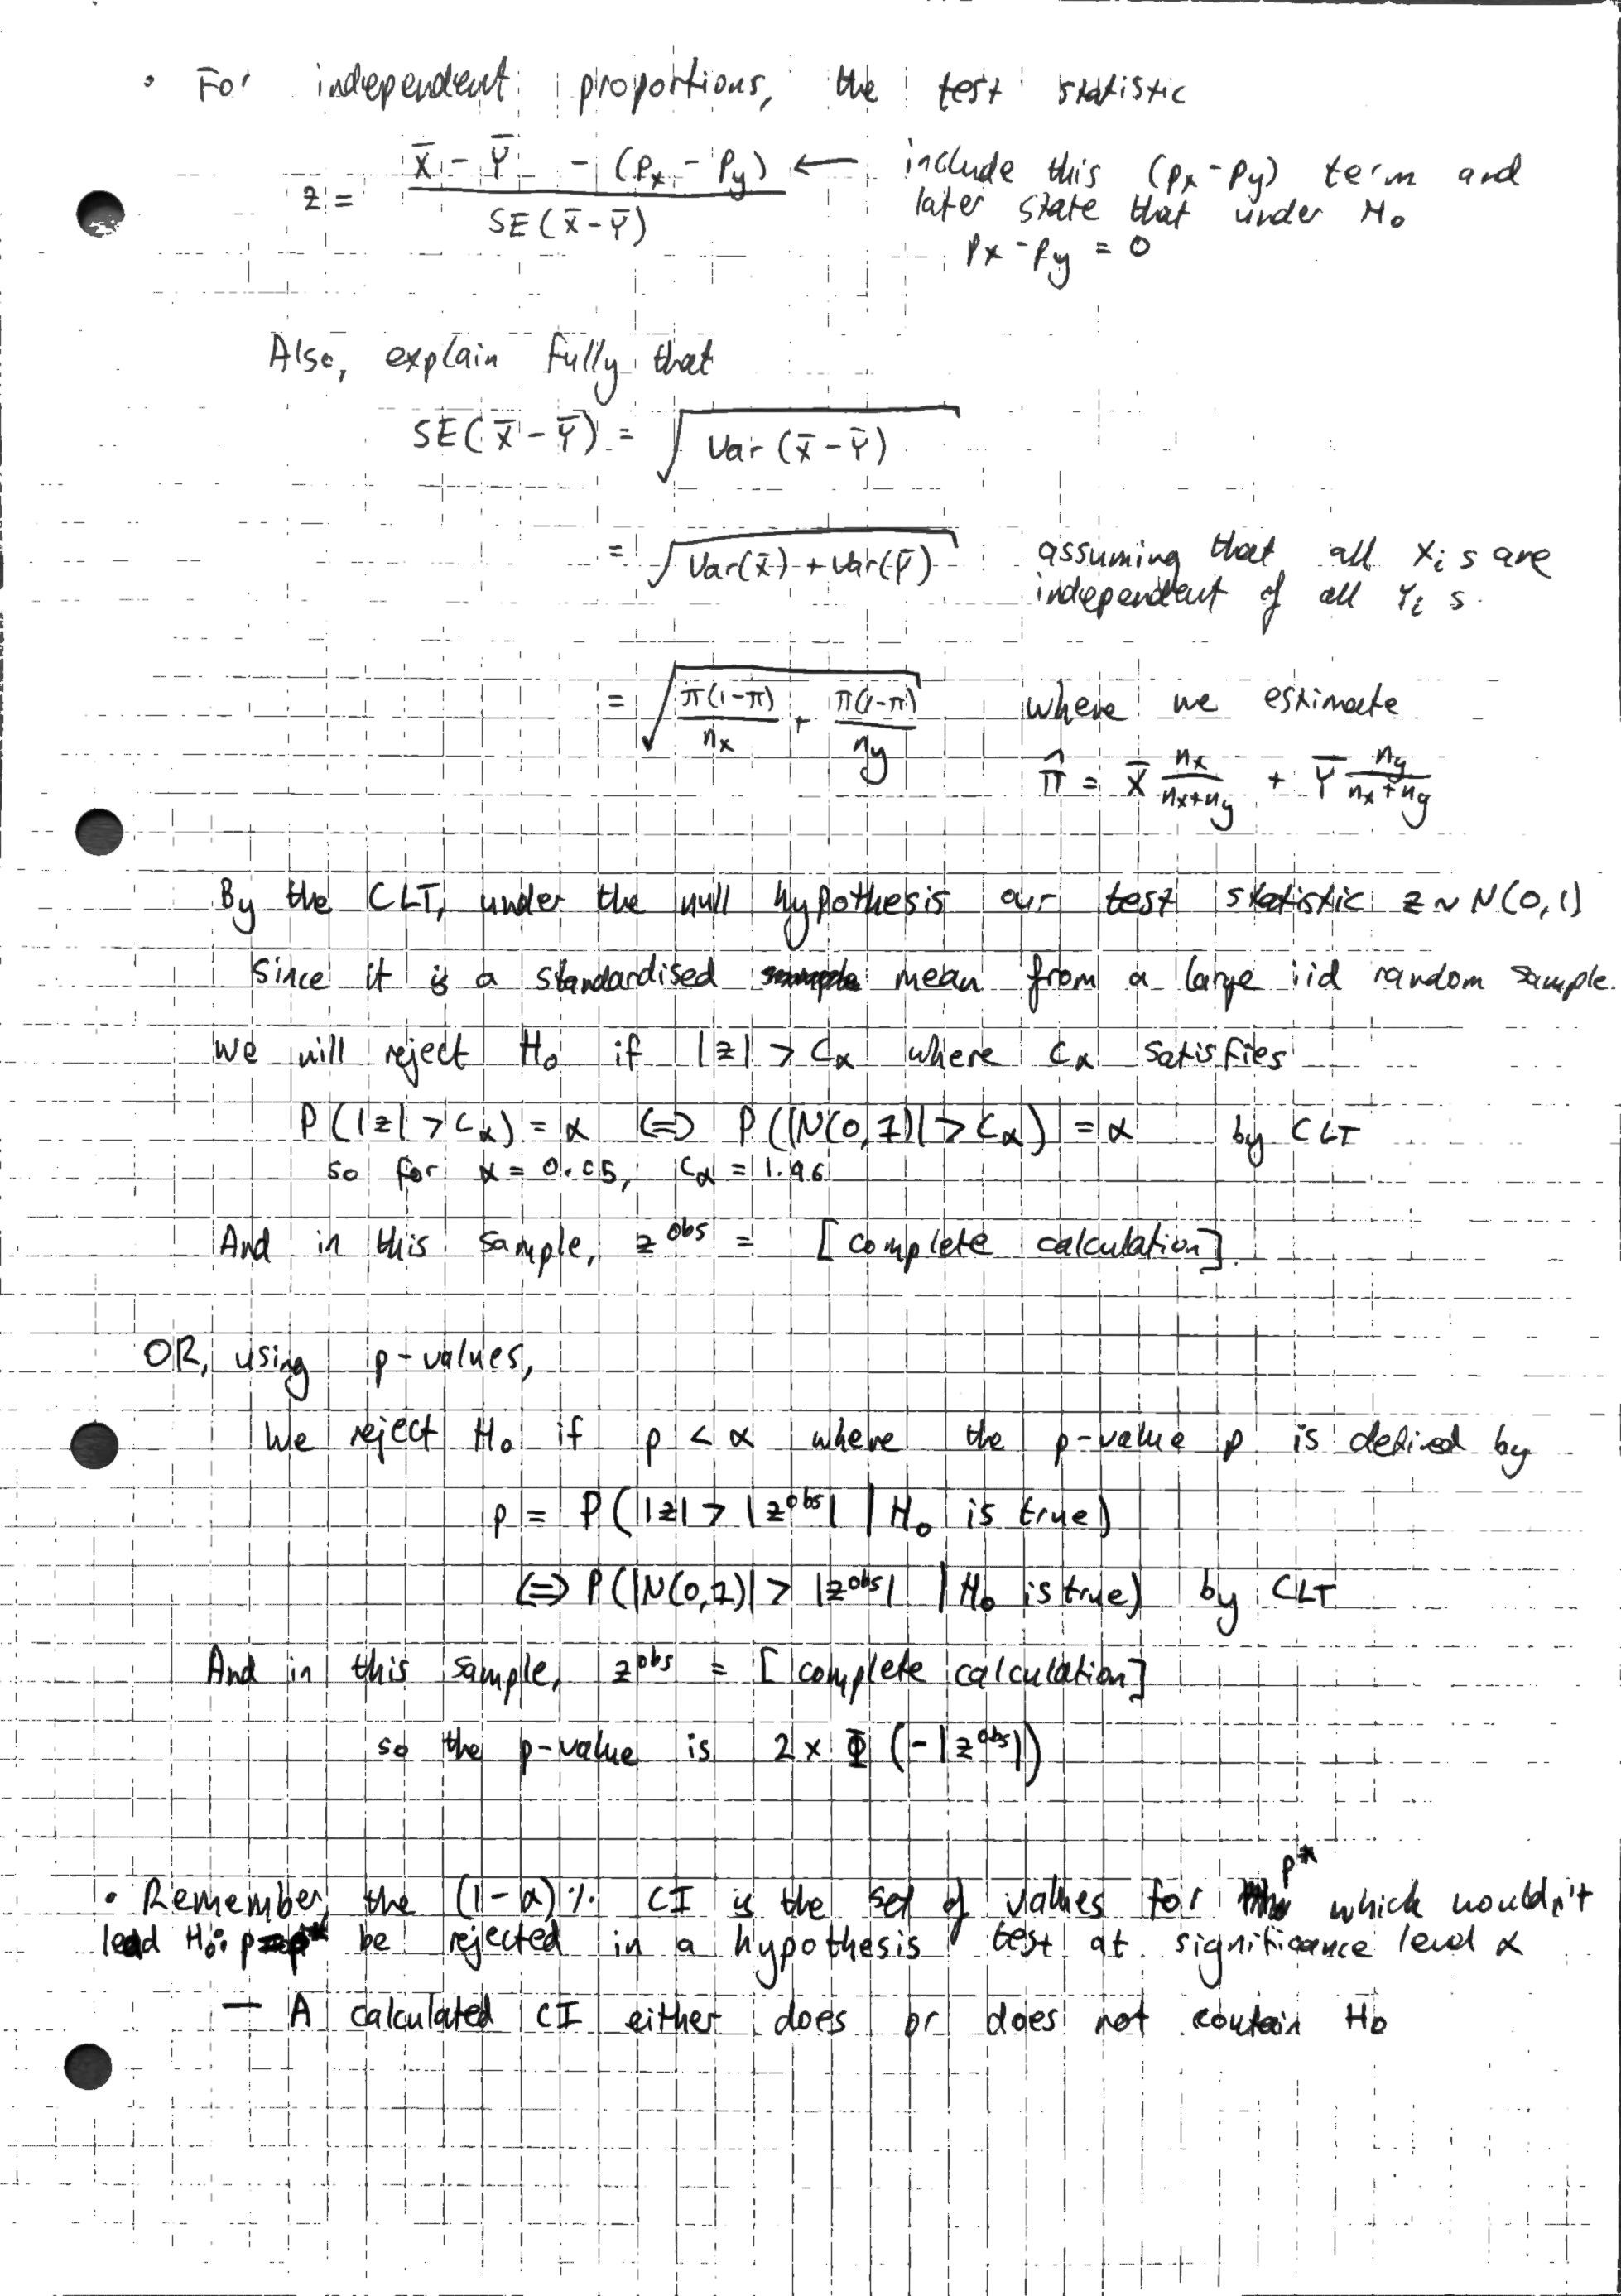 • For independent proportions, the test statistic
z = (X̄ - Ȳ - (px - py)) / SE(X̄-Ȳ) ← include this (px-py) term and
later state that under H₀
px - py = 0
Also, explain fully that
SE(X̄ - Ȳ) = √Var(X̄-Ȳ)
= √Var(X̄)+Var(Ȳ) assuming that all Xi s are
independent of all Yi s.
= √π(1-π)/nx + π(1-π)/ny where we estimate
π̂ = X̄ nx/(nx+ny) + Ȳ ny/(nx+ny)
By the CLT, under the null hypothesis our test statistic z ~ N(0,1)
since it is a standardised mean from a large iid random sample.
We will reject H₀ if |z| > cα where cα satisfies
P(|z| > cα) = α ⟺ P(|N(0,1)| > cα) = α by CLT
so for α = 0.05, cα = 1.96
And in this sample, z^obs = [complete calculation].
OR, using p-values,
We reject H₀ if p < α where the p-value p is defined by
p = P(|z| > |z^obs| | H₀ is true)
⟺ P(|N(0,1)| > |z^obs| | H₀ is true) by CLT
And in this sample, z^obs = [complete calculation]
so the p-value is 2 x Φ(-|z^obs|)
• Remember, the (1-α)% CI is the set of values for p* which wouldn't
lead H₀: be rejected in a hypothesis test at significance level α
— A calculated CI either does or does not contain H₀